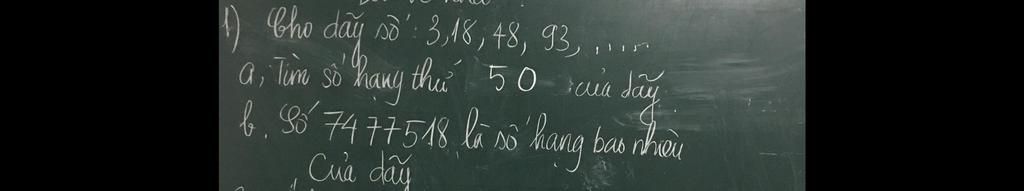 1) Cho dãy số: 3,18, 48, 93, .....
a, Tìm số hạng thứ 50 của dãy.
b. Số 7477518 là số hạng bao nhiêu
Của dãy